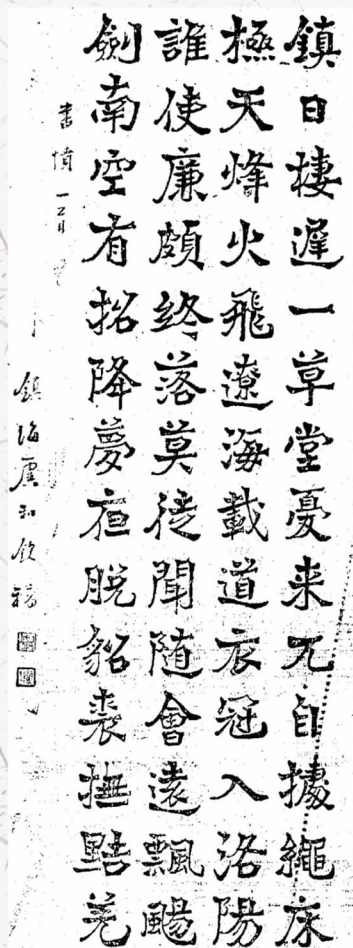 鎮日棲遲一草堂憂来兀自據繩床
極天烽火飛遼海載道衣冠入洛陽
誰使廉頗終落莫徒聞随會遠飄颺
劍南空有招降夢夜脫貂裘撫黠羌
書憤一首
鎮海虞和欽稿